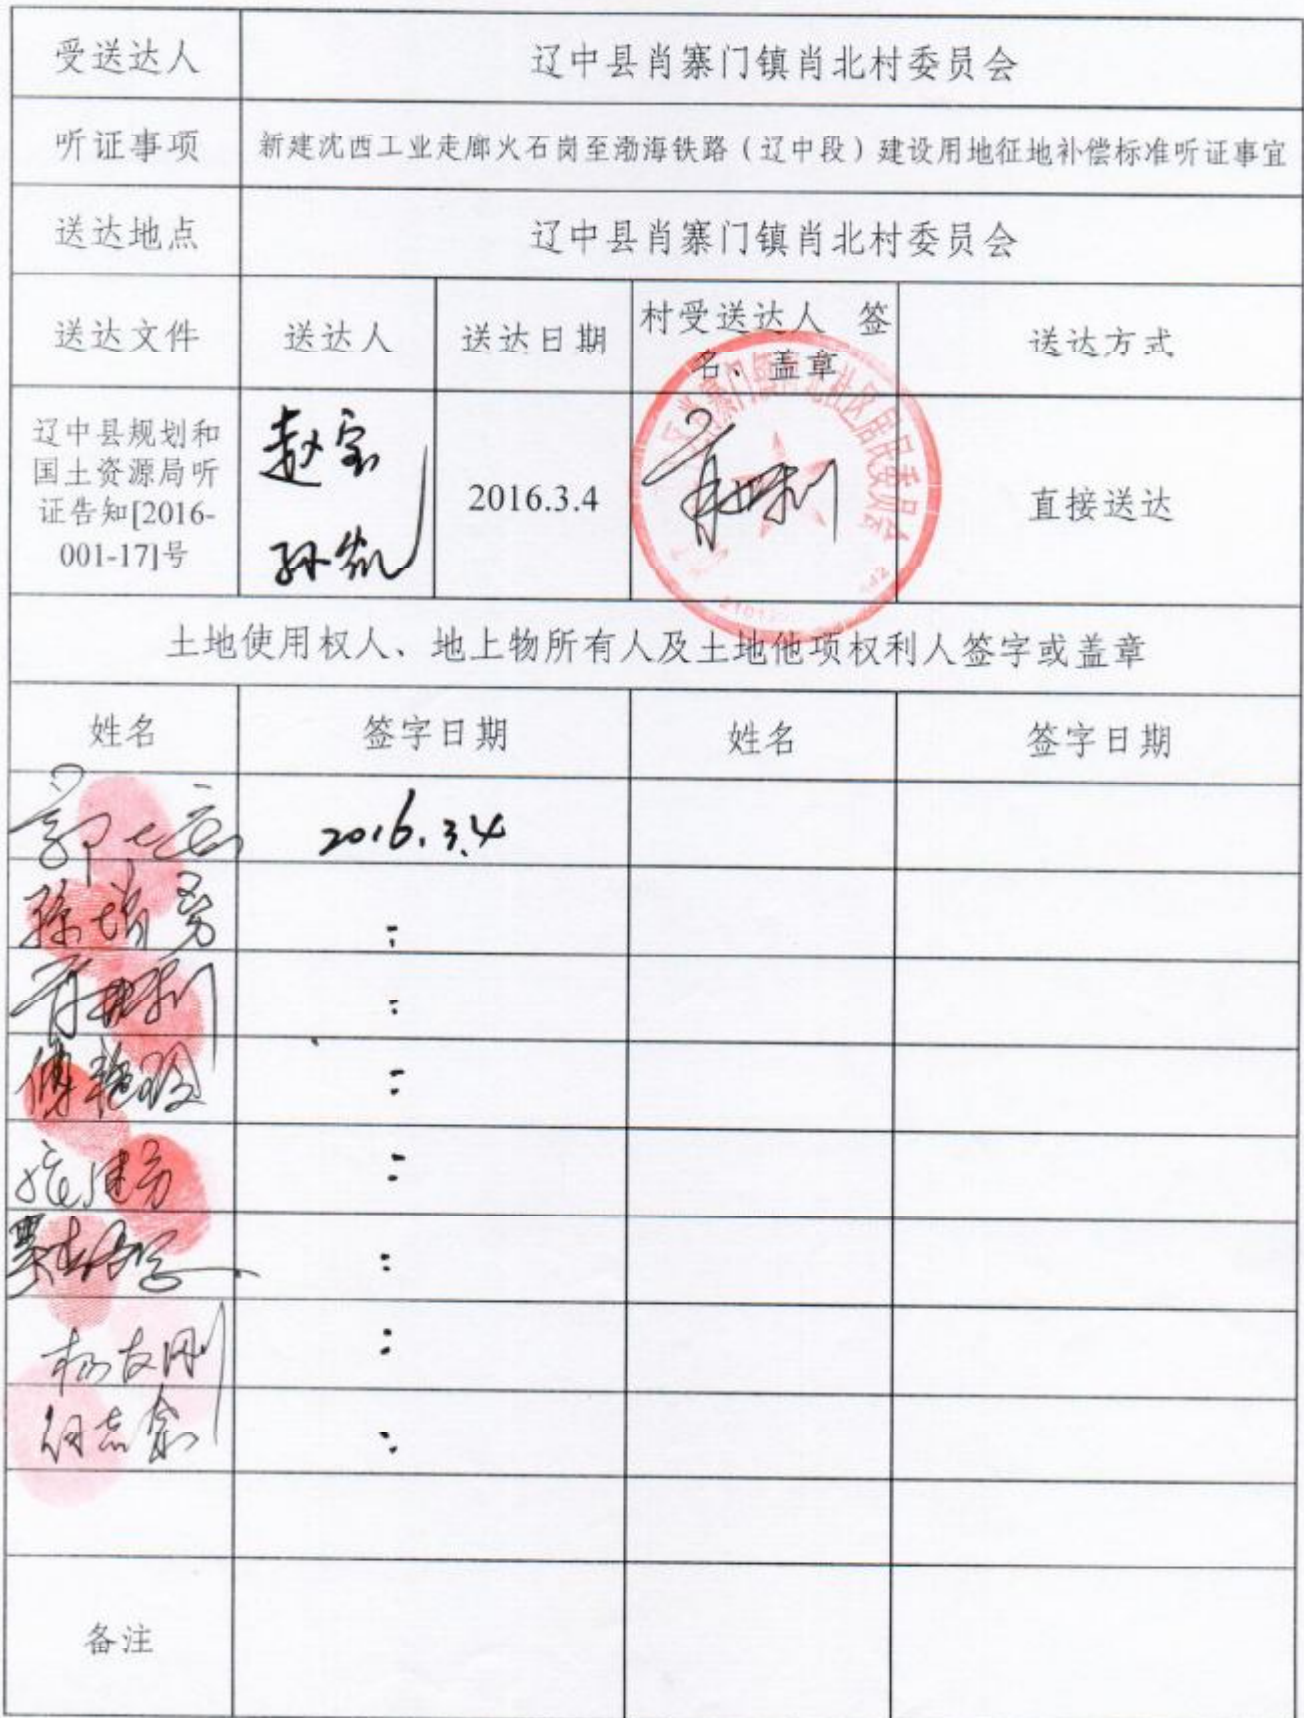 受送达人 辽中县肖寨门镇肖北村委员会
听证事项 新建沈西工业走廊火石岗至渤海铁路（辽中段）建设用地征地补偿标准听证事宜
送达地点 辽中县肖寨门镇肖北村委员会
送达文件 送达人 送达日期 村受送达人 签
名、盖章 送达方式
辽中县规划和
国土资源局听
证告知[2016-
001-17]号
赵宝
孙
2016.3.4
肖寨门镇肖北社区居民委员会
直接送达
土地使用权人、地上物所有人及土地他项权利人签字或盖章
姓名 签字日期 姓名 签字日期
郭 2016.3.4
孙
肖
傅艳玲
健
杨友刚
何志
备注